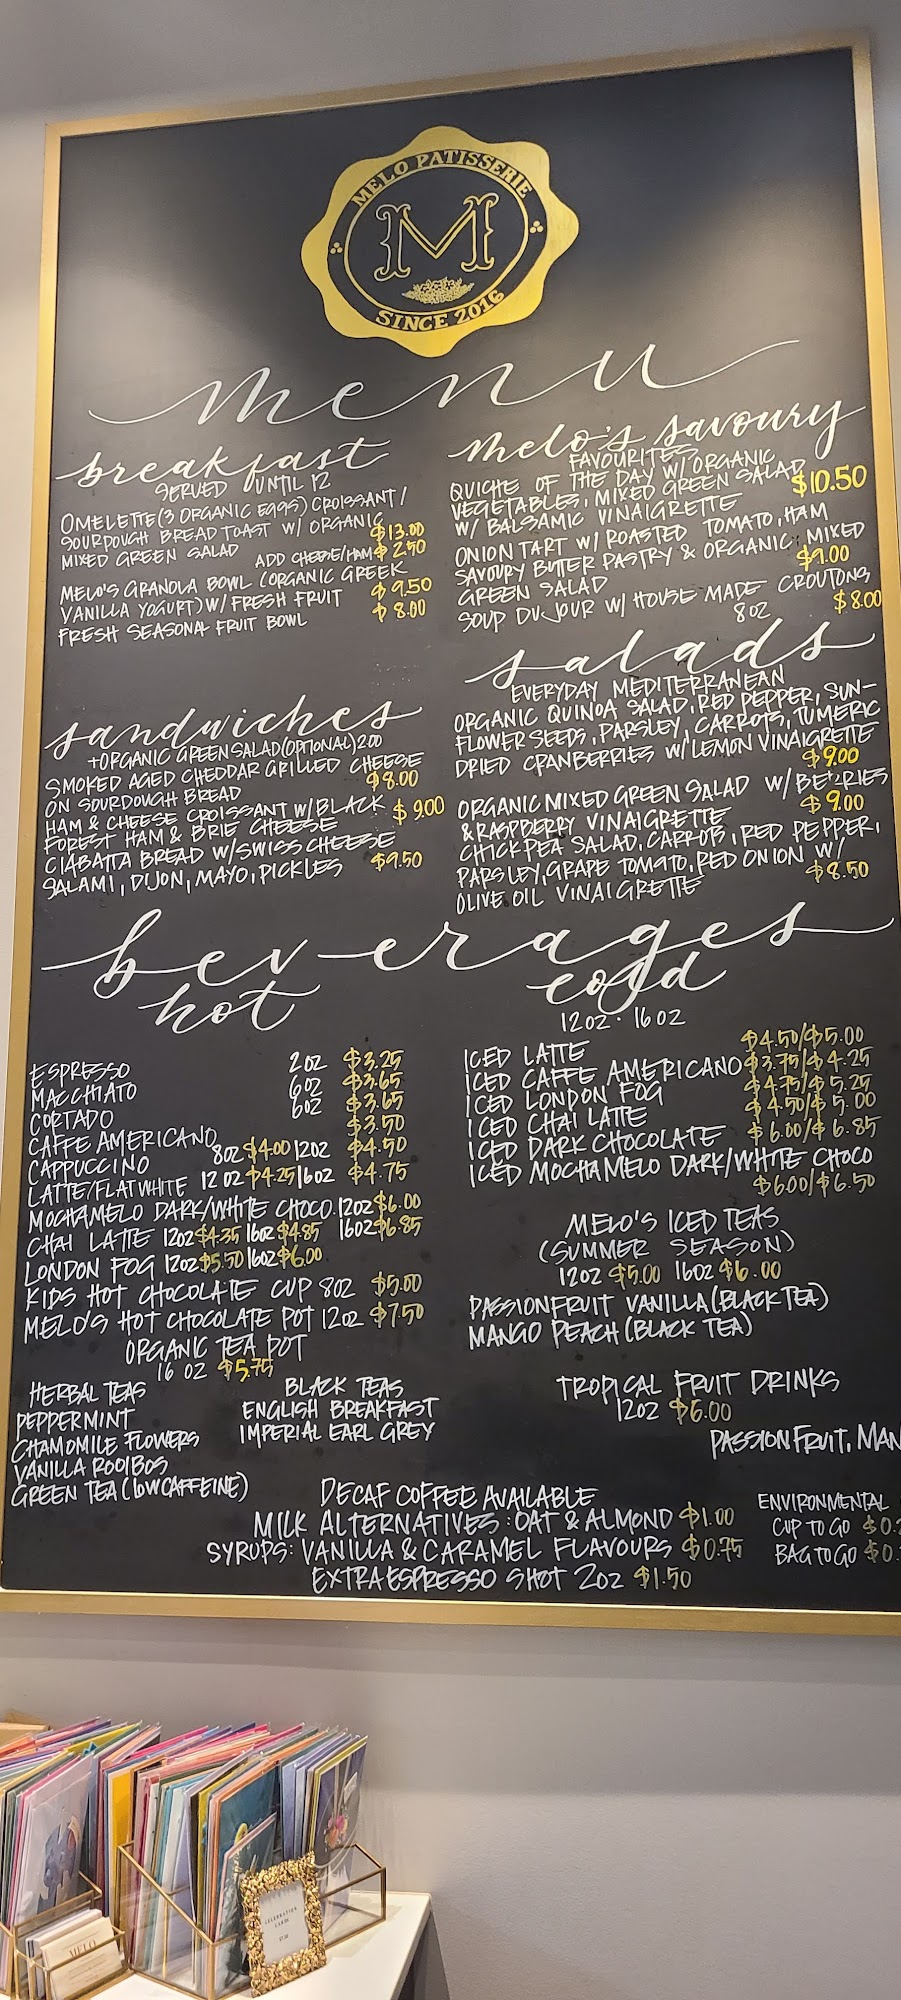 MELO PATISSERIE
M
SINCE 2016
menu
breakfast
SERVED UNTIL 12
OMELETTE (3 ORGANIC EGGS) CROISSANT /
SOURDOUGH BREAD TOAST W/ ORGANIC
MIXED GREEN SALAD $13.00
ADD CHEESE/HAM $2.50
MELO'S GRANOLA BOWL (ORGANIC GREEK
VANILLA YOGURT) W/ FRESH FRUIT $9.50
FRESH SEASONA FRUIT BOWL $8.00
melo's savoury
FAVOURITES
QUICHE OF THE DAY W/ ORGANIC
VEGETABLES, MIXED GREEN SALAD $10.50
W/ BALSAMIC VINAIGRETTE
ONION TART W/ ROASTED TOMATO, HAM
SAVOURY BUTER PASTRY & ORGANIC MIXED
GREEN SALAD $9.00
SOUP DU JOUR W/ HOUSE MADE CROUTONS
8OZ $8.00
sandwiches
+ORGANIC GREEN SALAD (OPTIONAL) 2.00
SMOKED AGED CHEDDAR GRILLED CHEESE
ON SOURDOUGH BREAD $8.00
HAM & CHEESE CROISSANT W/ BLACK $9.00
FOREST HAM & BRIE CHEESE
CIABATTA BREAD W/ SWISS CHEESE
SALAMI, DIJON, MAYO, PICKLES $9.50
salads
EVERYDAY MEDITERRANEAN
ORGANIC QUINOA SALAD, RED PEPPER, SUN-
FLOWER SEEDS, PARSLEY, CARROTS, TUMERIC
DRIED CRANBERRIES W/ LEMON VINAIGRETTE
$9.00
ORGANIC MIXED GREEN SALAD W/ BERRIES
& RASPBERRY VINAIGRETTE $9.00
CHICKPEA SALAD, CARROTS, RED PEPPER,
PARSLEY, GRAPE TOMATO, RED ONION W/
OLIVE OIL VINAIGRETTE $8.50
beverages
hot
ESPRESSO 2OZ $3.25
MACCHIATO 6OZ $3.65
CORTADO 6OZ $3.65
CAFFE AMERICANO $3.50
CAPPUCCINO 8OZ $4.00 12OZ $4.50
LATTE/FLAT WHITE 12OZ $4.25 16OZ $4.75
MOCHAMELO DARK/WHITE CHOCO. 12OZ $6.00
16OZ $6.85
CHAI LATTE 12OZ $4.35 16OZ $4.85
LONDON FOG 12OZ $5.50 16OZ $6.00
KIDS HOT CHOCOLATE CUP 8OZ $5.00
MELO'S HOT CHOCOLATE POT 12OZ $7.50
ORGANIC TEA POT
16 OZ $5.75
HERBAL TEAS
PEPPERMINT
CHAMOMILE FLOWERS
VANILLA ROOIBOS
GREEN TEA (LOW CAFFEINE)
BLACK TEAS
ENGLISH BREAKFAST
IMPERIAL EARL GREY
cold
12OZ · 16OZ
ICED LATTE $4.50/$5.00
ICED CAFFE AMERICANO $3.75/$4.25
ICED LONDON FOG $4.75/$5.25
ICED CHAI LATTE $4.50/$5.00
ICED DARK CHOCOLATE $6.00/$6.85
ICED MOCHAMELO DARK/WHITE CHOCO
$6.00/$6.50
MELO'S ICED TEAS
(SUMMER SEASON)
12OZ $5.00 16OZ $6.00
PASSIONFRUIT VANILLA (BLACK TEA)
MANGO PEACH (BLACK TEA)
TROPICAL FRUIT DRINKS
12OZ $6.00
PASSION FRUIT, MAN
DECAF COFFEE AVAILABLE
MILK ALTERNATIVES: OAT & ALMOND $1.00
SYRUPS: VANILLA & CARAMEL FLAVOURS $0.75
EXTRA ESPRESSO SHOT 2OZ $1.50
ENVIRONMENTAL
CUP TO GO $0.
BAG TO GO $0.
CELEBRATION
CARDS
MELO